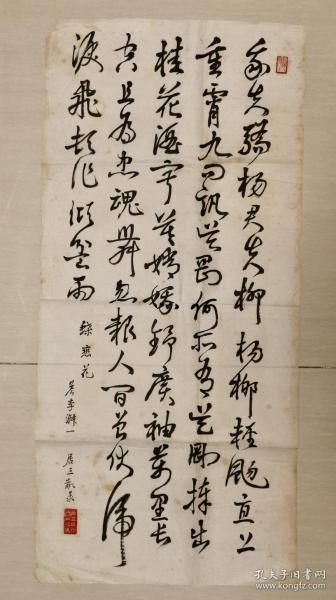 我失骄杨君失柳杨柳轻飏直上
重霄九问讯吴刚何所有吴刚捧出
桂花酒寂寞嫦娥舒广袖万里长
空且为忠魂舞忽报人间曾伏虎
泪飞顿作倾盆雨
蝶恋花
答李淑一
孔夫子旧书网